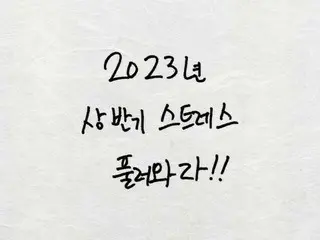 2023년
상반기 스트레스
풀러와라!!